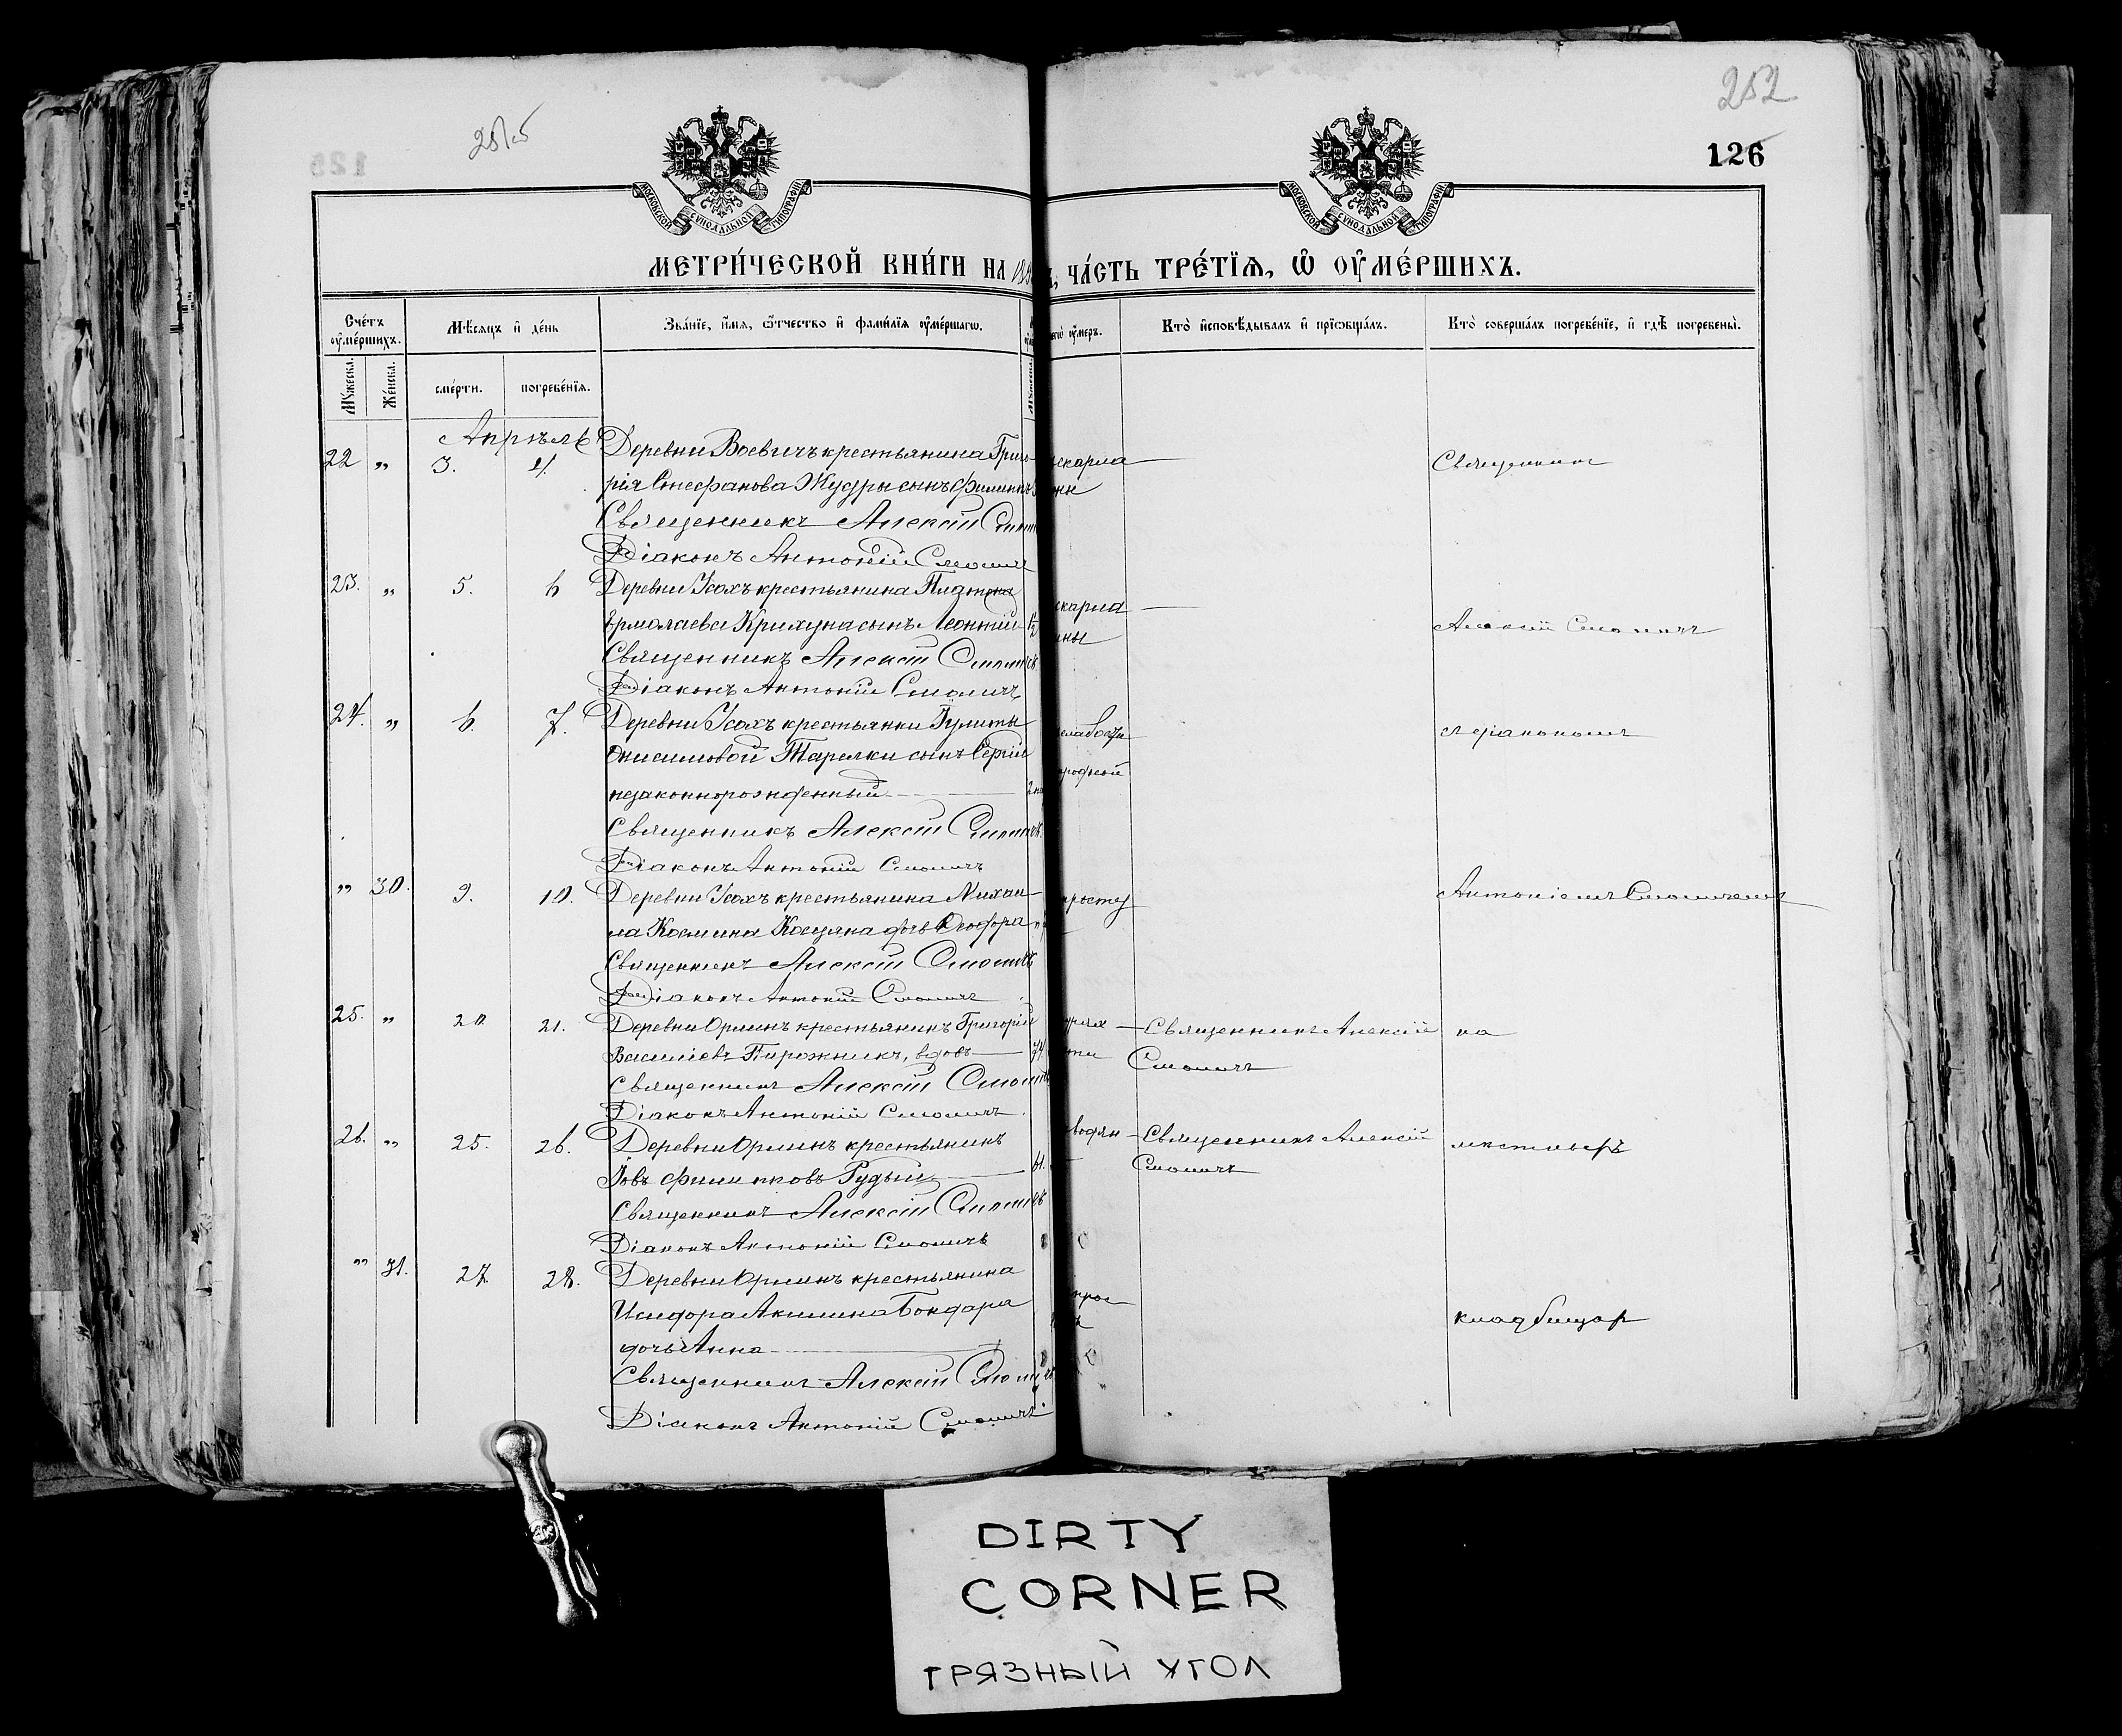 252
126
МОСКОВСКОЙ СѴНОДАЛЬНОЙ ТИПОГРАФІИ
МОСКОВСКОЙ СѴНОДАЛЬНОЙ ТИПОГРАФІИ
МЕТРИ́ЧЕСКОЙ КНИ́ГИ НА ЧА́СТЬ ТРЕ́ТІѦ, Ѡ ОУМЕ́РШИХЪ.
Сче́тъ оумершихъ.
Мѣсяцъ и де́нь
Зва́ніе, и́мя, ѻтчество и фами́лія оуме́ршагѡ.
оумеръ.
Кто̀ исповѣдывалъ и пріѻбща́лъ.
Кто̀ соверша́лъ погребе́ніе, и гдѣ̀ погребены̀.
Му́жеска.
Же́нска.
сме́рти.
погребе́нія.
Апрѣль
22 „ 3. 4. Деревни Воевичъ крестьянина Григо-
рія Стефанова Жудры сынъ Филиппъ
Священникъ Алексій
Діаконъ Антоній Смоличъ
Священникъ
23. „ 5. 6 Деревни Усохъ крестьянина Платона
Ермолаева Крихуна сынъ Леонтій
Священникъ Алексій Смоличъ
Діаконъ Антоній Смоличъ
Алексій Смоличъ
24. „ 6. 7. Деревни Усохъ крестьянки Іулиты
Онисимовой Тарелки сынъ Сергій
незаконнорожденный
Священникъ Алексій Смоличъ.
Діаконъ Антоній Смоличъ
съ діакономъ
„ 30. 9. 10. Деревни Усохъ крестьянина Михаи-
ла Космина Коцяка дочь Ѳеодора
Священникъ Алексій Смоличъ
Діаконъ Антоній Смоличъ
просту
Антоніемъ Смоличемъ
25. „ 20 21. Деревни Орлинъ крестьянинъ Григорій
Василіевъ Пирожникъ, вдовъ 74
Священникъ Алексій Смоличъ
Діаконъ Антоній Смоличъ.
Священникъ Алексій
Смоличъ
на
26. „ 25. 26. Деревни Орлинъ крестьянинъ
Іовъ Филипповъ Рудый 61.
Священникъ Алексій Смоличъ
Діаконъ Антоній Смоличъ
Священникъ Алексій
Смоличъ
„ 31. 27. 28. Деревни Орлинъ крестьянина
Исидора Акимина Бондара
дочь Анна
Священникъ Алексій Смоличъ
Діаконъ Антоній Смоличъ.
кладбищѣ
DIRTY
CORNER
ГРЯЗНЫЙ УГОЛ